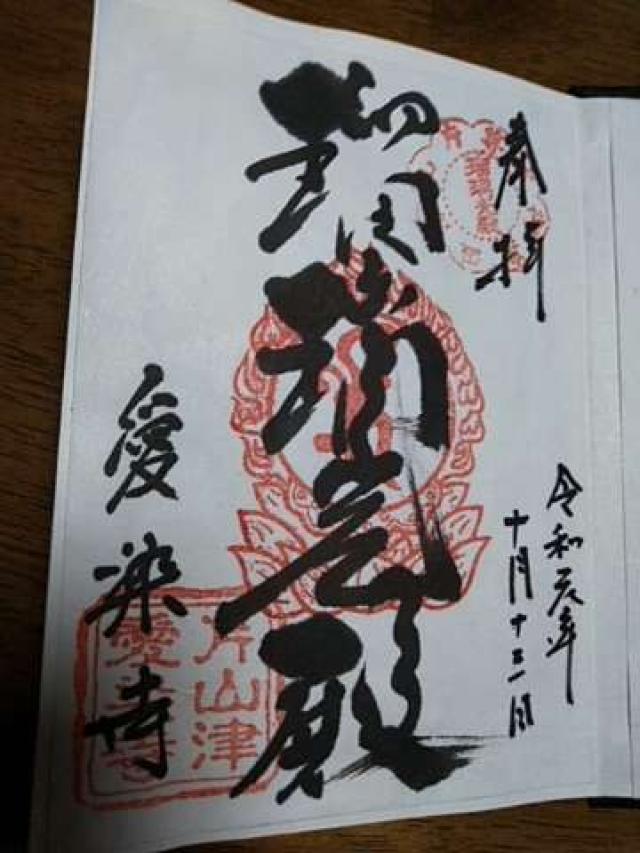 奉拝
令和元年
十月十三日
瑠璃光殿
愛染寺
片山津
愛染寺